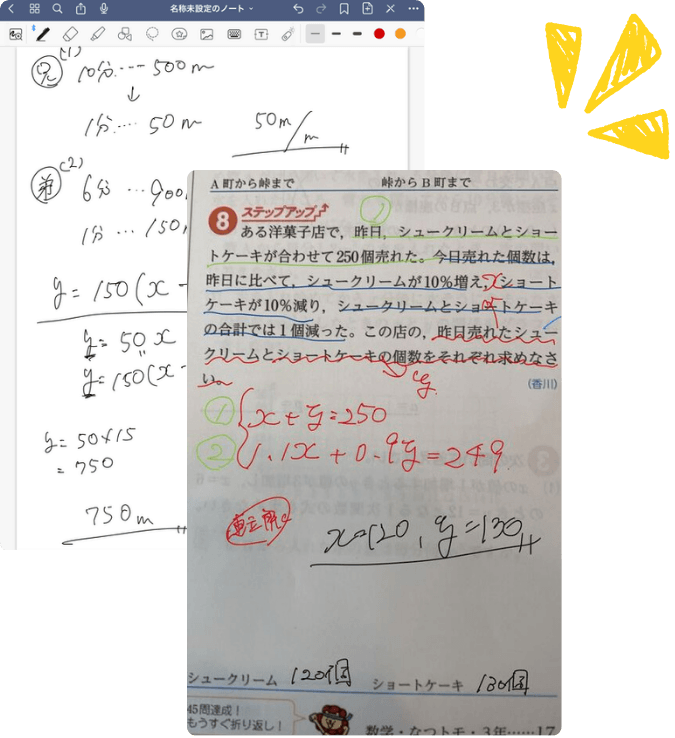 名称未設定のノート
兄 (1) 10分…500m
↓
1分…50m 50m/m
弟 (2) 6分…900
1分…150
y=150(x-
y=50x
y=150(x-
y=50×15
=750
750m
A町から峠まで 峠からB町まで
8 ステップアップ ①
ある洋菓子店で,昨日,シュークリームとショー
トケーキが合わせて250個売れた。今日売れた個数は,
昨日に比べて,シュークリームが10%増え,ショート
ケーキが10%減り,シュークリームとショートケーキ
の合計では1個減った。この店の,昨日売れたシュー
クリームとショートケーキの個数をそれぞれ求めなさ
い。
(香川)
x
y
① x+y=250
② 1.1x+0.9y=249
x=120, y=130
シュークリーム 120個 ショートケーキ 130個
45周達成!
もうすぐ折り返し!
数学・なつトモ・3年……17